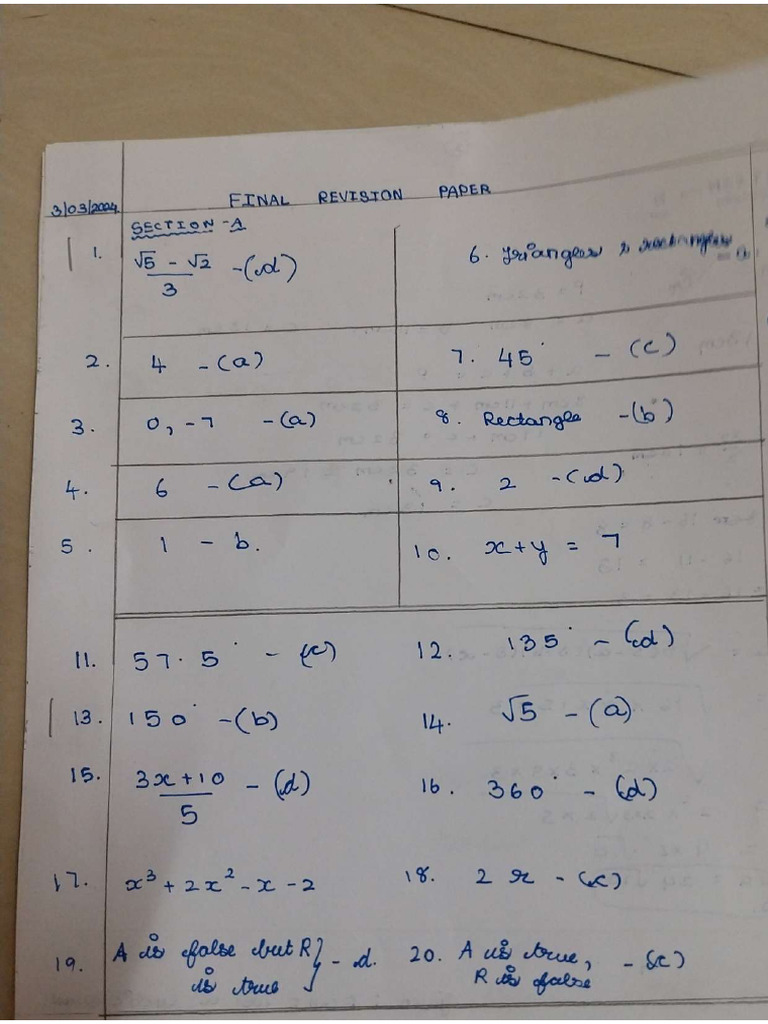 3/03/2024 FINAL REVISION PAPER
SECTION - A
1. √5 - √2 / 3 - (d)
6. Triangles & rectangles = a
2. 4 - (a)
7. 45° - (c)
3. 0, -7 - (a)
8. Rectangle - (b)
4. 6 - (a)
9. 2 - (d)
5. 1 - b.
10. x + y = 7
11. 57.5° - (c)
12. 135° - (d)
13. 150° - (b)
14. √5 - (a)
15. 3x + 10 / 5 - (d)
16. 360° - (d)
17. x³ + 2x² - x - 2
18. 2 r - (c)
19. A is false but R } - d.
is true
20. A is true, - (c)
R is false